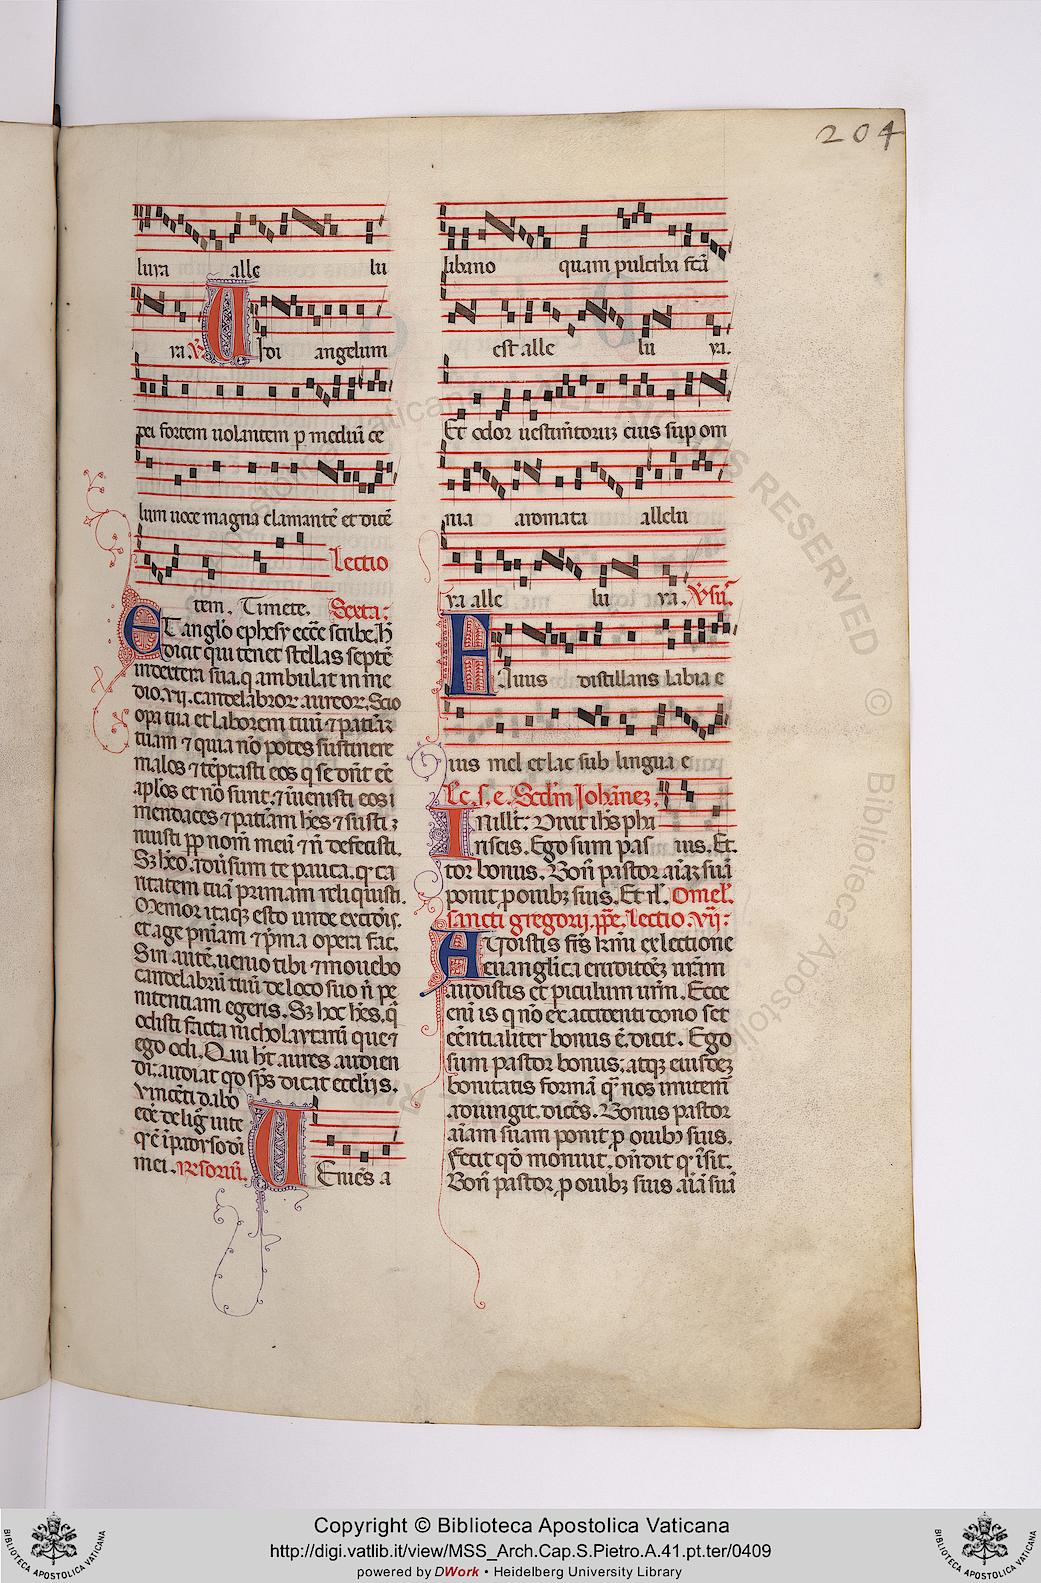 204
luya alle lu
ya. V̄ Vidi angelum
dei fortem uolantem p̱ mediū ce
lum uoce magna clamantē et dicē
Lectio
tem. Timete. Sexta:
ET anglo ephesy ecce scribe. h̄
dicit qui tenet stellas septē
in dextera sua. q ambulat in me
dio. vii. candelabror aureor. Scio
opa tua et laborem tuū ⁊ patiā
tuam ⁊ quia nō potes sustinere
malos ⁊ tēptasti eos q se dn̄t eē
aplos et nō sunt. ⁊ iuenisti eos
mendaces ⁊ patiam hēs ⁊ susti
nuisti pp̱ nom̄ meū ⁊ n̄ defecisti.
Sz hēo aduersum te pauca. q ca
ritatem tuā primam reliquisti.
Memor itaqz esto unde excidis.
et age pniam ⁊ pma opera fac.
Sin autē. uenio tibi ⁊ mouebo
candelabrū tuū de loco suo n̄ pe
nitentiam egeris. Sz hoc hēs. q
odisti facta nicholaytarū que ⁊
ego odi. Qui ht aures audien
di. audiat qd sps dicat eccliis.
Vincēti dabo
edē de lig uite
q ē i padyso di
mei. Rsoriū. Veniēs a
libano quam pulchra fcā
est alle lu ya.
Et odor uestim̄torz eius sup om
nia aromata allelu
ya alle lu ya. V̄sū.
Fauus distillans labia e
ius mel et lac sub lingua e
Lc. s. e. Scdm Johānez.
In illt. Dixit ihs phi
riseis. Ego sum pas ius. Et.
tor bonus. Bon pastor aiaz suā
ponit p ouibz suis. Et rl. Omel.
sancti gregorii. ppe. Lectio. vij:
Audistis frs krmi ex lectione
euanglica eruditōez nrām
audistis et piculum urm. Ecce
eni is q nō ex accidenti dono set
eēntialiter bonus ē. dicit. Ego
sum pastor bonus: atqz eiusdez
bonitatis formā q nos imitem̄
adiungit. dicēs. Bonus pastor
aiam suam ponit p ouibz suis.
Fecit qd monuit. ondit q iusit.
Bon pastor p ouibz suis aiā suā
Copyright © Biblioteca Apostolica Vaticana
http://digi.vatlib.it/view/MSS_Arch.Cap.S.Pietro.A.41.pt.ter/0409
powered by DWork • Heidelberg University Library